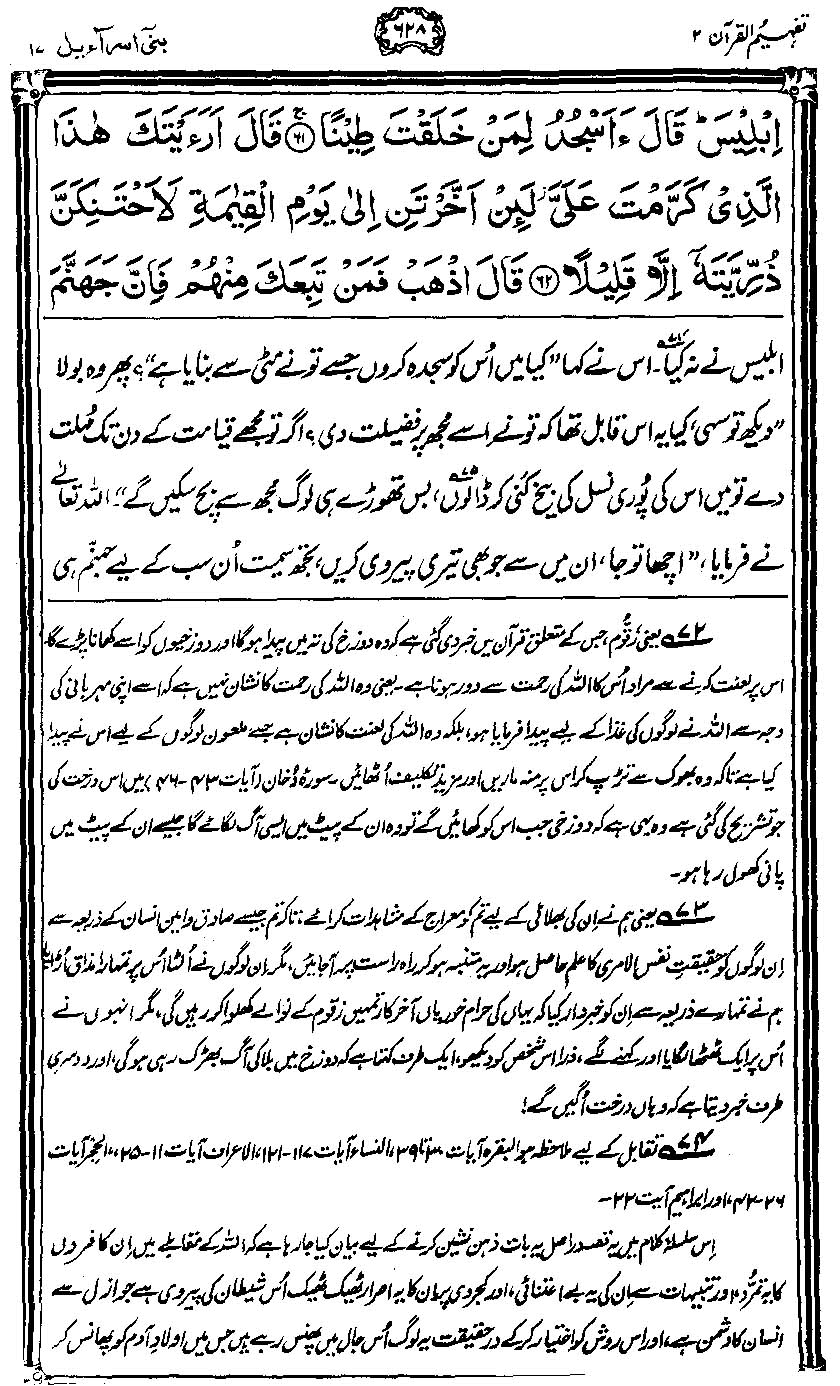 تفہیم القرآن ۲
۶۲۸
بنی اسرآءیل ۱۷
اِبْلِیْسَ ؕ قَالَ ءَاَسْجُدُ لِمَنْ خَلَقْتَ طِیْنًا ﴿۶۱﴾ۚ قَالَ اَرَءَیْتَکَ ہٰذَا
الَّذِیْ کَرَّمْتَ عَلَیَّ ۫ لَئِنْ اَخَّرْتَنِ اِلٰی یَوْمِ الْقِیٰمَۃِ لَاَحْتَنِکَنَّ
ذُرِّیَّتَہٗۤ اِلَّا قَلِیْلًا ﴿۶۲﴾ قَالَ اذْہَبْ فَمَنْ تَبِعَکَ مِنْہُمْ فَاِنَّ جَہَنَّمَ
ابلیس نے نہ کیا۷۴۔ اس نے کہا ”کیا میں اُس کو سجدہ کروں جسے تو نے مٹی سے بنایا ہے“؟ پھر وہ بولا
”دیکھ تو سہی، کیا یہ اس قابل تھا کہ تو نے اسے مجھ پر فضیلت دی؟ اگر تو مجھے قیامت کے دن تک مُہلت
دے تو میں اس کی پُوری نسل کی بیخ کنی کر ڈالوں۷۵، بس تھوڑے ہی لوگ مجھ سے بچ سکیں گے“۔ اللہ تعالٰے
نے فرمایا، ”اچھا تو جا، ان میں سے جو بھی تیری پیروی کریں، تجھ سمیت اُن سب کے لیے جہنّم ہی
۷۲ یعنی زقّوم، جس کے متعلق قرآن میں خبر دی گئی ہے کہ وہ دوزخ کی تہ میں پیدا ہوگا اور دوزخیوں کو اسے کھانا پڑے گا۔
اس پر لعنت کرنے سے مراد اُس کا اللہ کی رحمت سے دور ہونا ہے۔ یعنی وہ اللہ کی رحمت کا نشان نہیں ہے کہ اسے اپنی مہربانی کی
وجہ سے اللہ نے لوگوں کی غذا کے لیے پیدا فرمایا ہو، بلکہ وہ اللہ کی لعنت کا نشان ہے جسے ملعون لوگوں کے لیے اس نے پیدا
کیا ہے تاکہ وہ بھوک سے تڑپ کر اس پر منہ ماریں اور مزید تکلیف اُٹھائیں۔ سورۂ دُخان (آیات ۴۳-۴۶) میں اس درخت کی
جو تشریح کی گئی ہے وہ یہی ہے کہ دوزخی جب اس کو کھائیں گے تو وہ ان کے پیٹ میں ایسی آگ لگائے گا جیسے ان کے پیٹ میں
پانی کھول رہا ہو۔
۷۳ یعنی ہم نے ان کی بھلائی کے لیے تم کو معراج کے مشاہدات کرائے، تاکہ تم جیسے صادق و امین انسان کے ذریعہ سے
اِن لوگوں کو حقیقتِ نفس الامری کا علم حاصل ہو اور یہ متنبہ ہو کر راہ راست پر آجائیں، مگر ان لوگوں نے اُلٹا اُس پر تمہارا مذاق اُڑایا۔
ہم نے تمہارے ذریعہ سے اِن کو خبردار کیا کہ یہاں کی حرام خوریاں آخر کار تمہیں زقوم کے نوالے کھلوا کر رہیں گی، مگر انہوں نے
اُس پر ایک ٹھٹھا لگایا اور کہنے لگے، ذرا اس شخص کو دیکھو، ایک طرف کہتا ہے کہ دوزخ میں بلا کی آگ بھڑک رہی ہوگی، اور دوسری
طرف خبر دیتا ہے کہ وہاں درخت اُگیں گے!
۷۴ تقابل کے لیے ملاحظہ ہو البقرہ آیات ۳۰ تا ۳۹، النساء آیات ۱۱۷-۱۲۱، الاعراف آیات ۱۱-۲۵، الحجر آیات
۲۶-۴۲، اور ابراہیم آیت ۲۲۔
اِس سلسلۂ کلام میں یہ قصہ دراصل یہ بات ذہن نشین کرنے کے لیے بیان کیا جا رہا ہے کہ اللہ کے مقابلے میں اِن کافروں
کا یہ تمرُّد، اور تنبیہات سے اِن کی یہ بے اعتنائی، اور کجروی پر اِن کا یہ اصرار ٹھیک ٹھیک اُس شیطان کی پیروی ہے جو ازل سے
انسان کا دشمن ہے، اور اس روش کو اختیار کر کے درحقیقت یہ لوگ اُس جال میں پھنس رہے ہیں جس میں اولادِ آدم کو پھانس کر